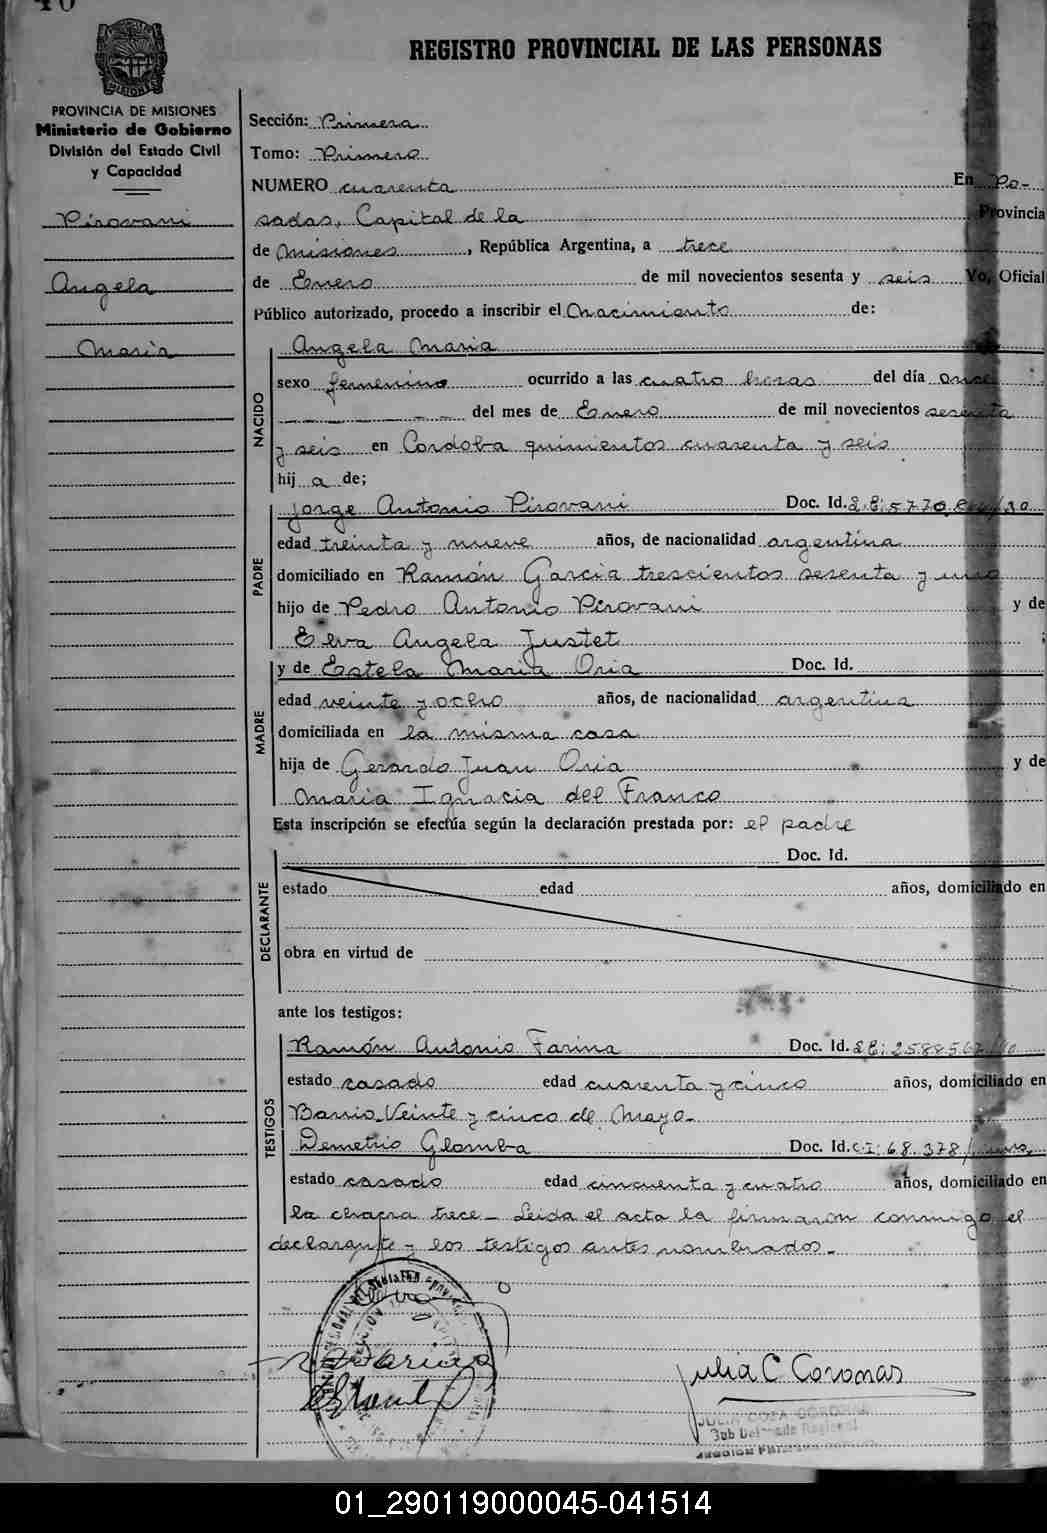 40
REGISTRO PROVINCIAL DE LAS PERSONAS
MISIONES
PROVINCIA DE MISIONES
Ministerio de Gobierno
División del Estado Civil
y Capacidad
Pirovani
Angela
Maria
Sección: Primera
Tomo: Primero
NUMERO cuarenta En Po-
sadas, Capital de la Provincia
de Misiones, República Argentina, a trece
de Enero de mil novecientos sesenta y seis Yo, Oficial
Público autorizado, procedo a inscribir el Nacimiento de:
NACIDO
Angela Maria
sexo femenino ocurrido a las cuatro horas del día once
del mes de Enero de mil novecientos sesenta
y seis en Cordoba quinientos cuarenta y seis
hij a de;
PADRE
Jorge Antonio Pirovani Doc. Id.
edad treinta y nueve años, de nacionalidad argentina
domiciliado en Ramón Garcia trescientos sesenta y uno
hijo de Pedro Antonio Pirovani y de
Elva Angela Justet ;
MADRE
y de Estela Maria Oria Doc. Id.
edad veinte y ocho años, de nacionalidad argentina
domiciliada en la misma casa
hija de Gerardo Juan Oria y de
Maria Ignacia del Franco
Esta inscripción se efectúa según la declaración prestada por: el padre
DECLARANTE
Doc. Id.
estado edad años, domiciliado en
obra en virtud de
ante los testigos:
TESTIGOS
Ramón Antonio Farina Doc. Id.
estado casado edad cuarenta y cinco años, domiciliado en
Barrio Veinte y cinco de Mayo-
Demetrio Glomba Doc. Id. C.I: 68.378/
estado casado edad cincuenta y cuatro años, domiciliado en
la chacra trece - Leida el acta la firmaron conmigo el
declarante y los testigos antes nombrados.-
Julia C Coronas
01_290119000045-041514